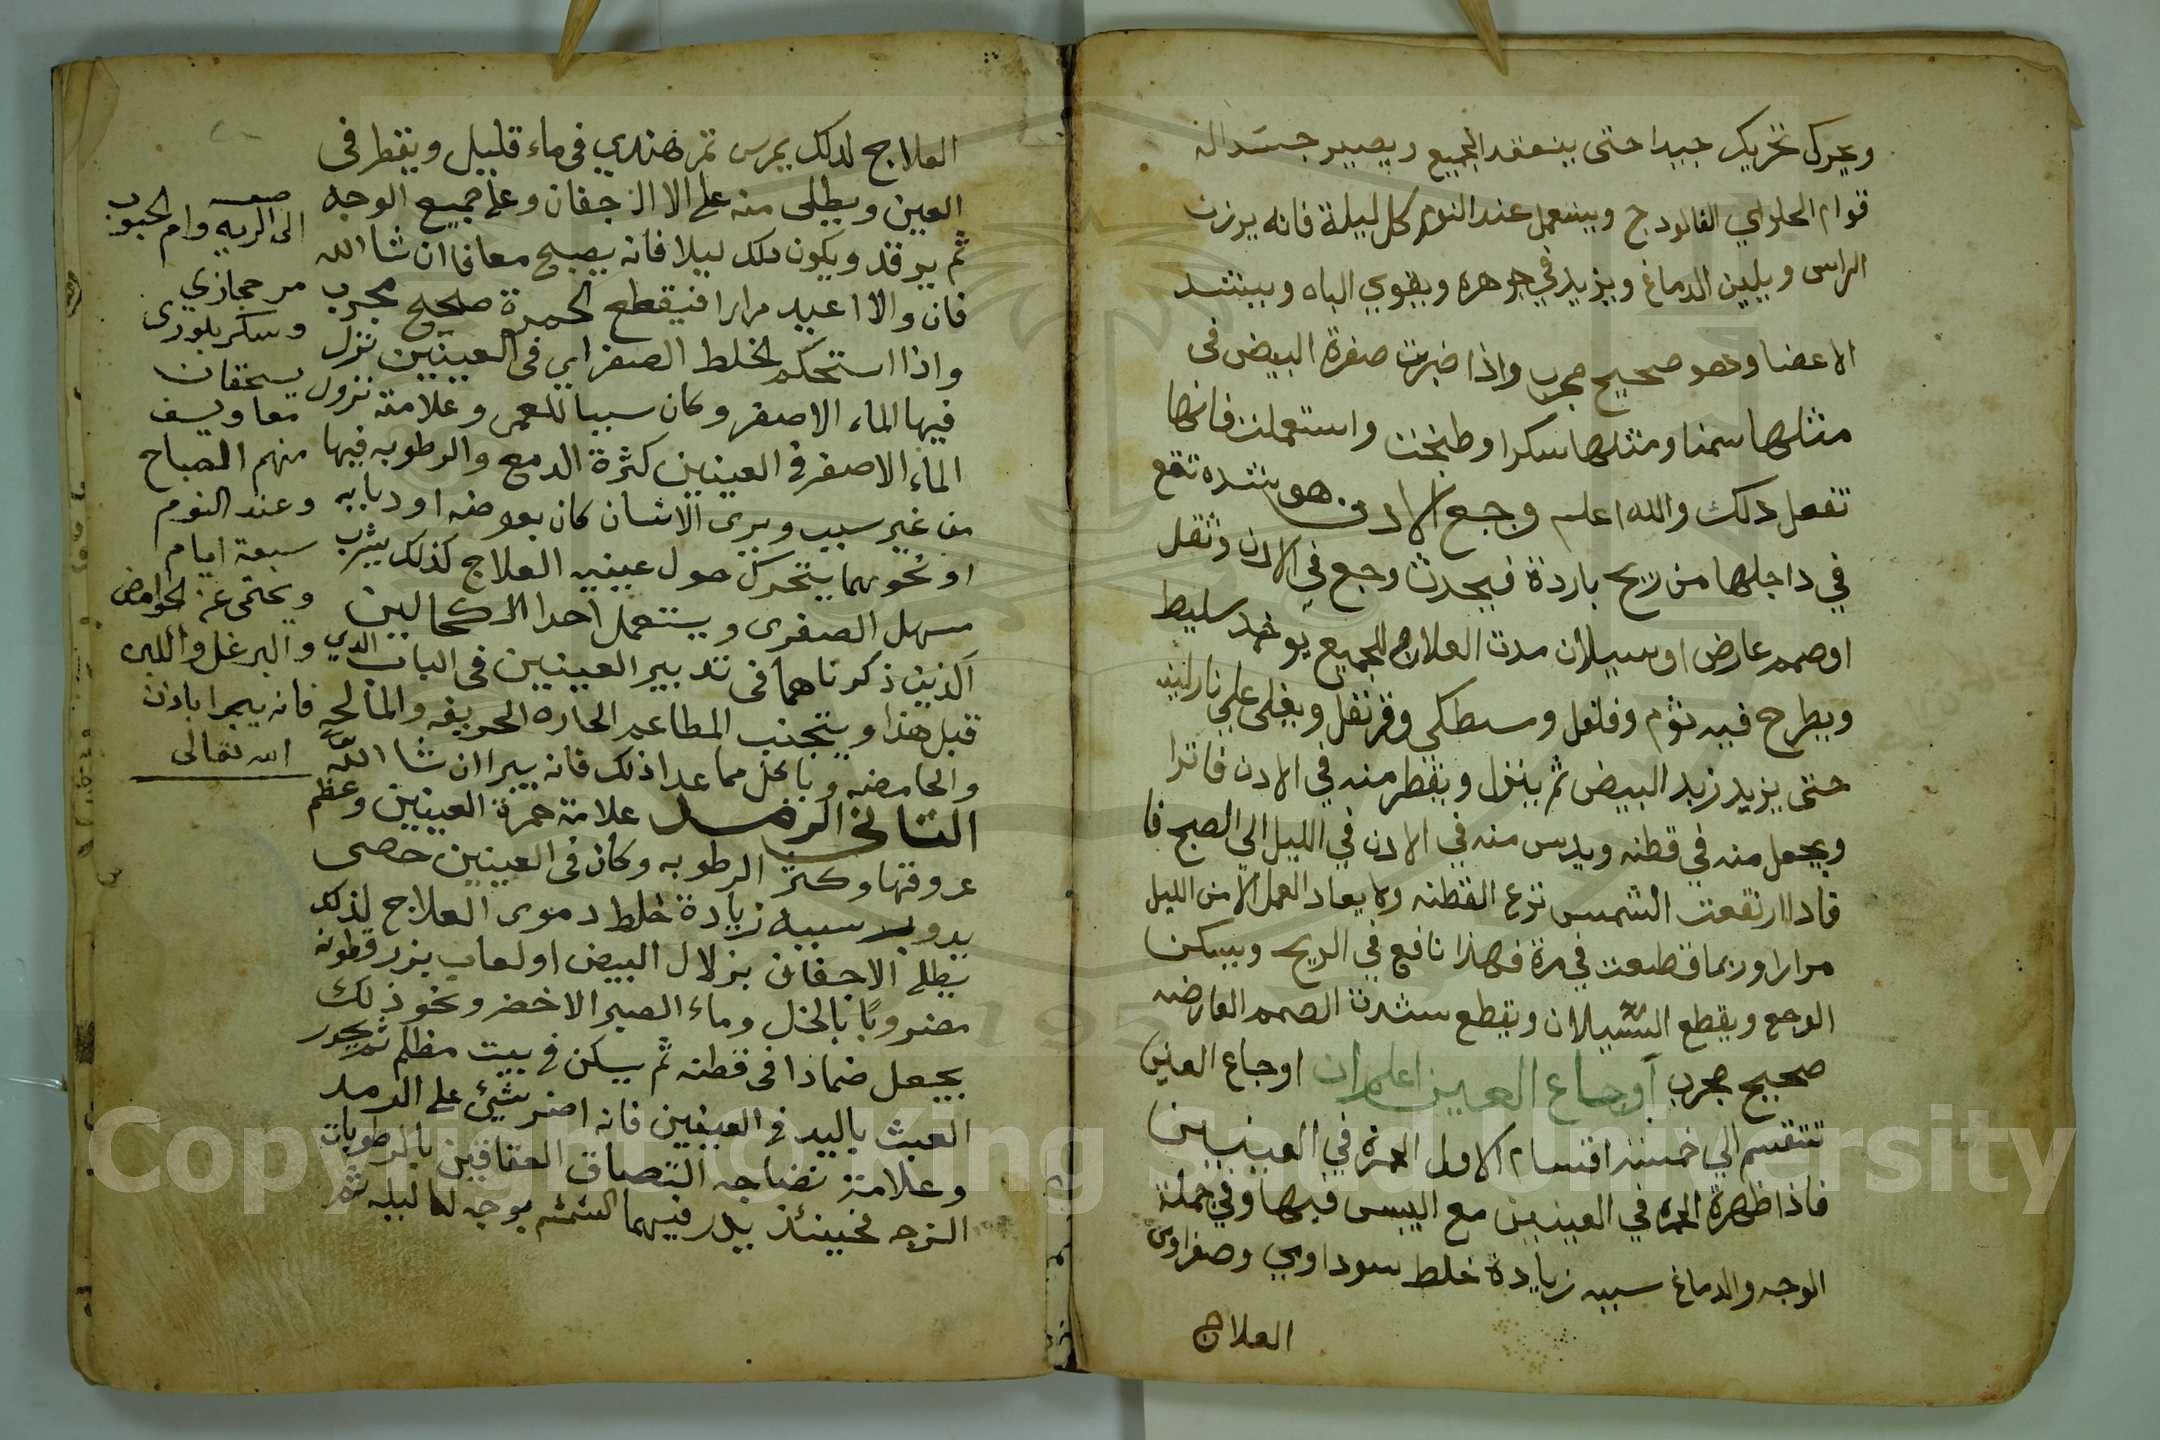 ويحرك تحريك جيدا حتى ينعقد الجميع ويصير
قوام الحلواي الفالودج ويستعمل عند النوم كل ليلة فانه يرزن
الراس ويلين الدماغ ويزيد في جوهره ويقوي الباه ويشد
الاعضا وهو صحيح مجرب واذا ضربت صفرة البيض في
مثلها سمنا ومثلها سكرا وطبخت واستعملت فانها
تفعل ذلك والله اعلم وجع الادن هو شده تقع
في داخلها من ريح باردة فيحدث وجع في الادن وثقل
او صمم عارض او سيلان مدت العلاج للجميع يوخد سليط
ويطرح فيه ثوم وفلفل وسطكي وقرنفل ويغلى علي نار لينه
حتى يزيد زبد البيض ثم ينزل ويقطر منه في الادن فاترا
ويجعل منه في قطنه ويدس منه في الادن في الليل الي الصبح فا
فاداارتفعت الشمس نزع القطنه ولا يعاد العمل الا من الليل
مرارا وربما قطعت في مرة فهذا نافع في الريح ويسكن
الوجع ويقطع السيلان ويقطع سدت الصمم العارضه
صحيح مجرب أوجاع العين اعلم ان اوجاع العين
تنقسم الي خمسة اقسام الاول الحمرة في العينين
فاذا ظهرة الحمره في العينين مع اليبس فيها وفي جملة
الوجه والدماغ سببه زيادة خلط سوداوي وصفراوي
العلاج
العلاج لدلك يمرس تمر هندي في ماء قليل ويقطر في
العين ويطلى منه على الا الاجفان وعلى جميع الوجه
ثم يرقد ويكون دلك ليلا فانه يصبح معافا ان شا الله
فان والا اعيد مرارا فتيقطع الحمرة صحيح مجرب
واذا استحكم الخلط الصفراي في العينين نزل
فيها الماء الاصفر وكان سببا للعمى وعلامة نزول
الماء الاصفر في العينين كثرة الدمع والرطوبه فيها
من غير سبب ويرى الانسان كان بعوضه او دبابه
او نحوهما يتحرك حول عينيه العلاج كذلك يشرب
مسهل الصفرى ويستعمل احدا الاكحالين
الذين ذكرناهما في تدبير العينين في الباب الذي
قبل هذا ويتجنب المطاعم الحاره الحريفه والمالحه
والحامضه ويأكل مما عدا ذلك فانه يبرا ان شا الله
الثاني الرمد علامة حمرة العينين وعظم
عروقها وكثر الرطوبه وكان في العينين حصى
يدور سببه زيادة خلط دموى العلاج لذلك
يطلى الاجفان بزلال البيض او لعاب بزر قطونه
مضروبًا بالخل وماء الصبر الاخضر ونحو ذلك
يجعل ضمادا في قطنه ثم يسكن في بيت مظلم ثم يحدر
العبث باليد في العينين فانه اضر شيئ على الرمد
وعلامة نضاجه التصاق بالرطوبات
اللزجه فحينئذ يدر فيهما يوجه لها ليله ثم
الى الريه وام الحبوب
مر حجازي
وسكر بلورى
يسحقان
معا ويسف
منهم الصباح
وعند النوم
سبعة ايام
ويحتمى عن الحوامض
والبرغل واللبن
فانه يبرا باذن
الله تعالى